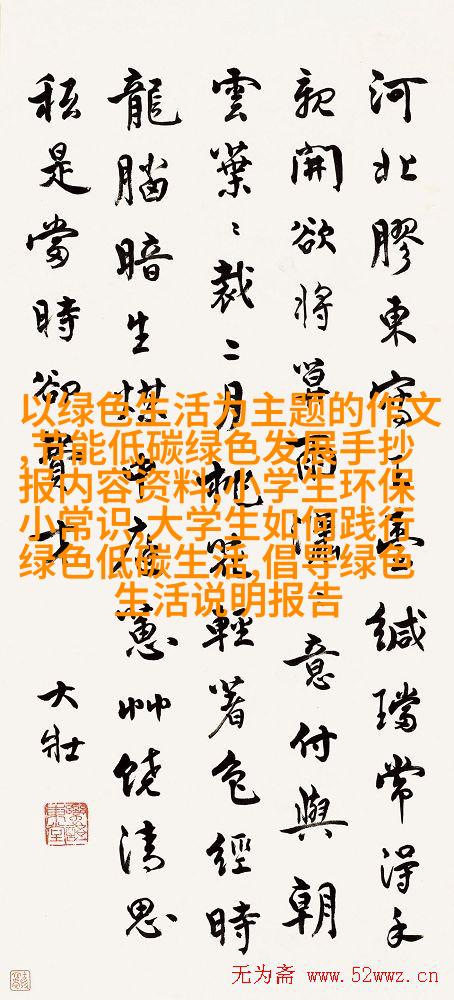 河北膠東寫緘璫常得手
親開欲將雨意付與朝
雲葉〻裁二月輕著色經時
龍腦暗生煤蕙艸饒清思
秖是當時卻
大壯
以绿色生活为主题的作文
,节能低碳绿色发展手抄
报内容资料,小学生环保
小常识,大学生如何践行
绿色低碳生活,倡导绿色
生活说明报告
无为斋 www.52wwz.cn